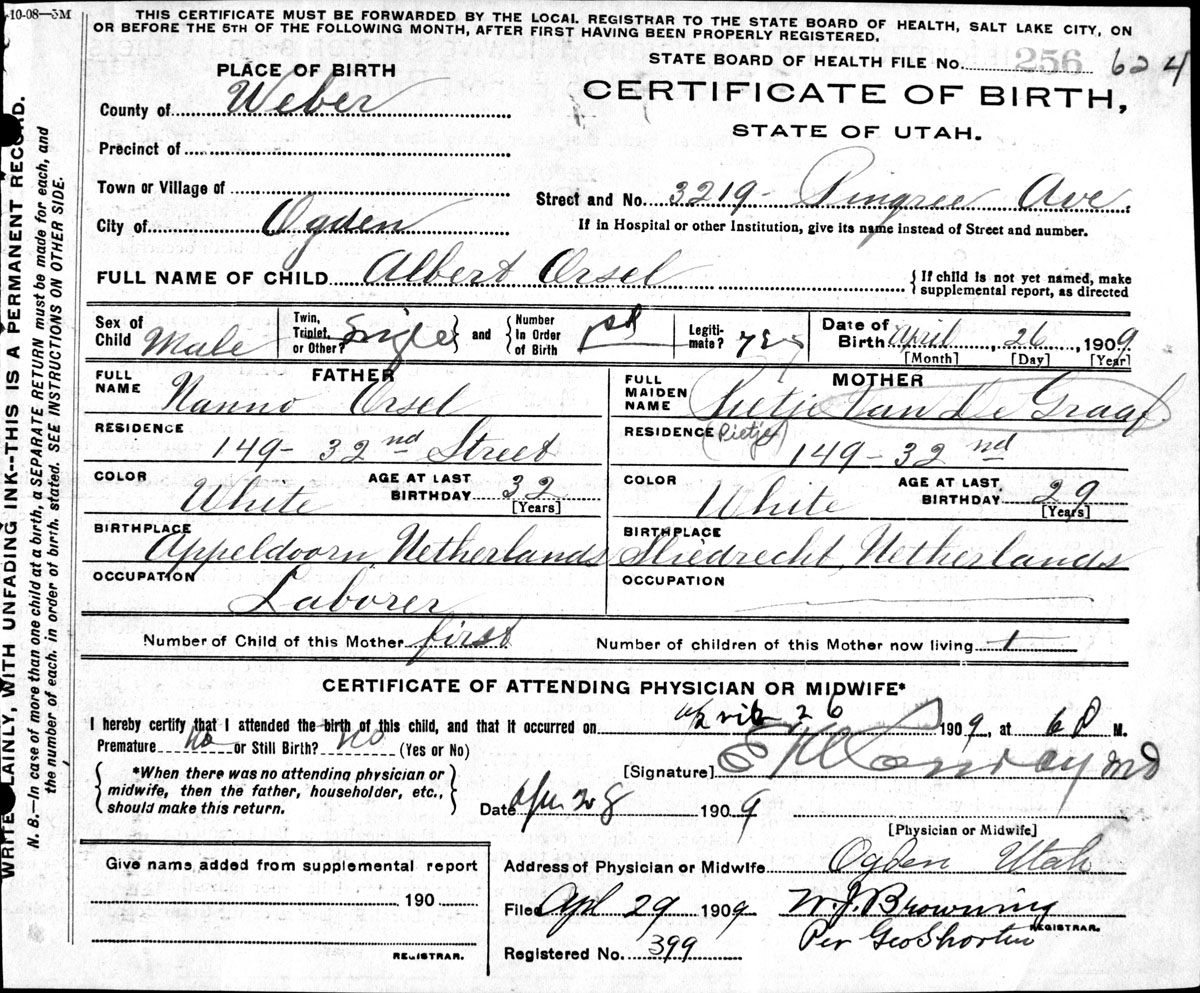 -10-08—3M
THIS CERTIFICATE MUST BE FORWARDED BY THE LOCAL REGISTRAR TO THE STATE BOARD OF HEALTH, SALT LAKE CITY, ON
OR BEFORE THE 5TH OF THE FOLLOWING MONTH, AFTER FIRST HAVING BEEN PROPERLY REGISTERED.
STATE BOARD OF HEALTH FILE No. 256 624
PLACE OF BIRTH
CERTIFICATE OF BIRTH,
STATE OF UTAH.
County of Weber
Precinct of
Town or Village of
Street and No. 3219- Pingree Ave.
City of Ogden
If in Hospital or other Institution, give its name instead of Street and number.
FULL NAME OF CHILD Albert Orsel
{ If child is not yet named, make
supplemental report, as directed
Sex of Child Male
Twin, Triplet, or Other? Single } and { Number In Order of Birth 1st
Legitimate? yes
Date of Birth April, 26, 1909
[Month] [Day] [Year]
FATHER
FULL NAME Nanno Orsel
MOTHER
FULL MAIDEN NAME Pietje Van De Graaf
(Pietje)
RESIDENCE 149- 32nd Street
RESIDENCE 149-32nd
COLOR White
AGE AT LAST BIRTHDAY 32
[Years]
COLOR White
AGE AT LAST BIRTHDAY 29
[Years]
BIRTHPLACE Appeldoorn, Netherlands
BIRTHPLACE Sliedrecht, Netherlands
OCCUPATION Laborer
OCCUPATION
Number of Child of this Mother first
Number of children of this Mother now living 1
CERTIFICATE OF ATTENDING PHYSICIAN OR MIDWIFE*
I hereby certify that I attended the birth of this child, and that it occurred on April 26 1909, at 6 P M.
Premature no or Still Birth? no (Yes or No)
{ *When there was no attending physician or
midwife, then the father, householder, etc.,
should make this return. }
[Signature] Conroy MD
Date Apr 28 1909
[Physician or Midwife]
Give name added from supplemental report
190
REGISTRAR.
Address of Physician or Midwife Ogden Utah
Filed Apl 29 1909 W. J. Browning
REGISTRAR.
Per Geo Shorten
Registered No. 399
WRITE PLAINLY, WITH UNFADING INK--THIS IS A PERMANENT RECORD.
N. B.—In case of more than one child at a birth, a SEPARATE RETURN must be made for each, and
the number of each, in order of birth, stated. SEE INSTRUCTIONS ON OTHER SIDE.